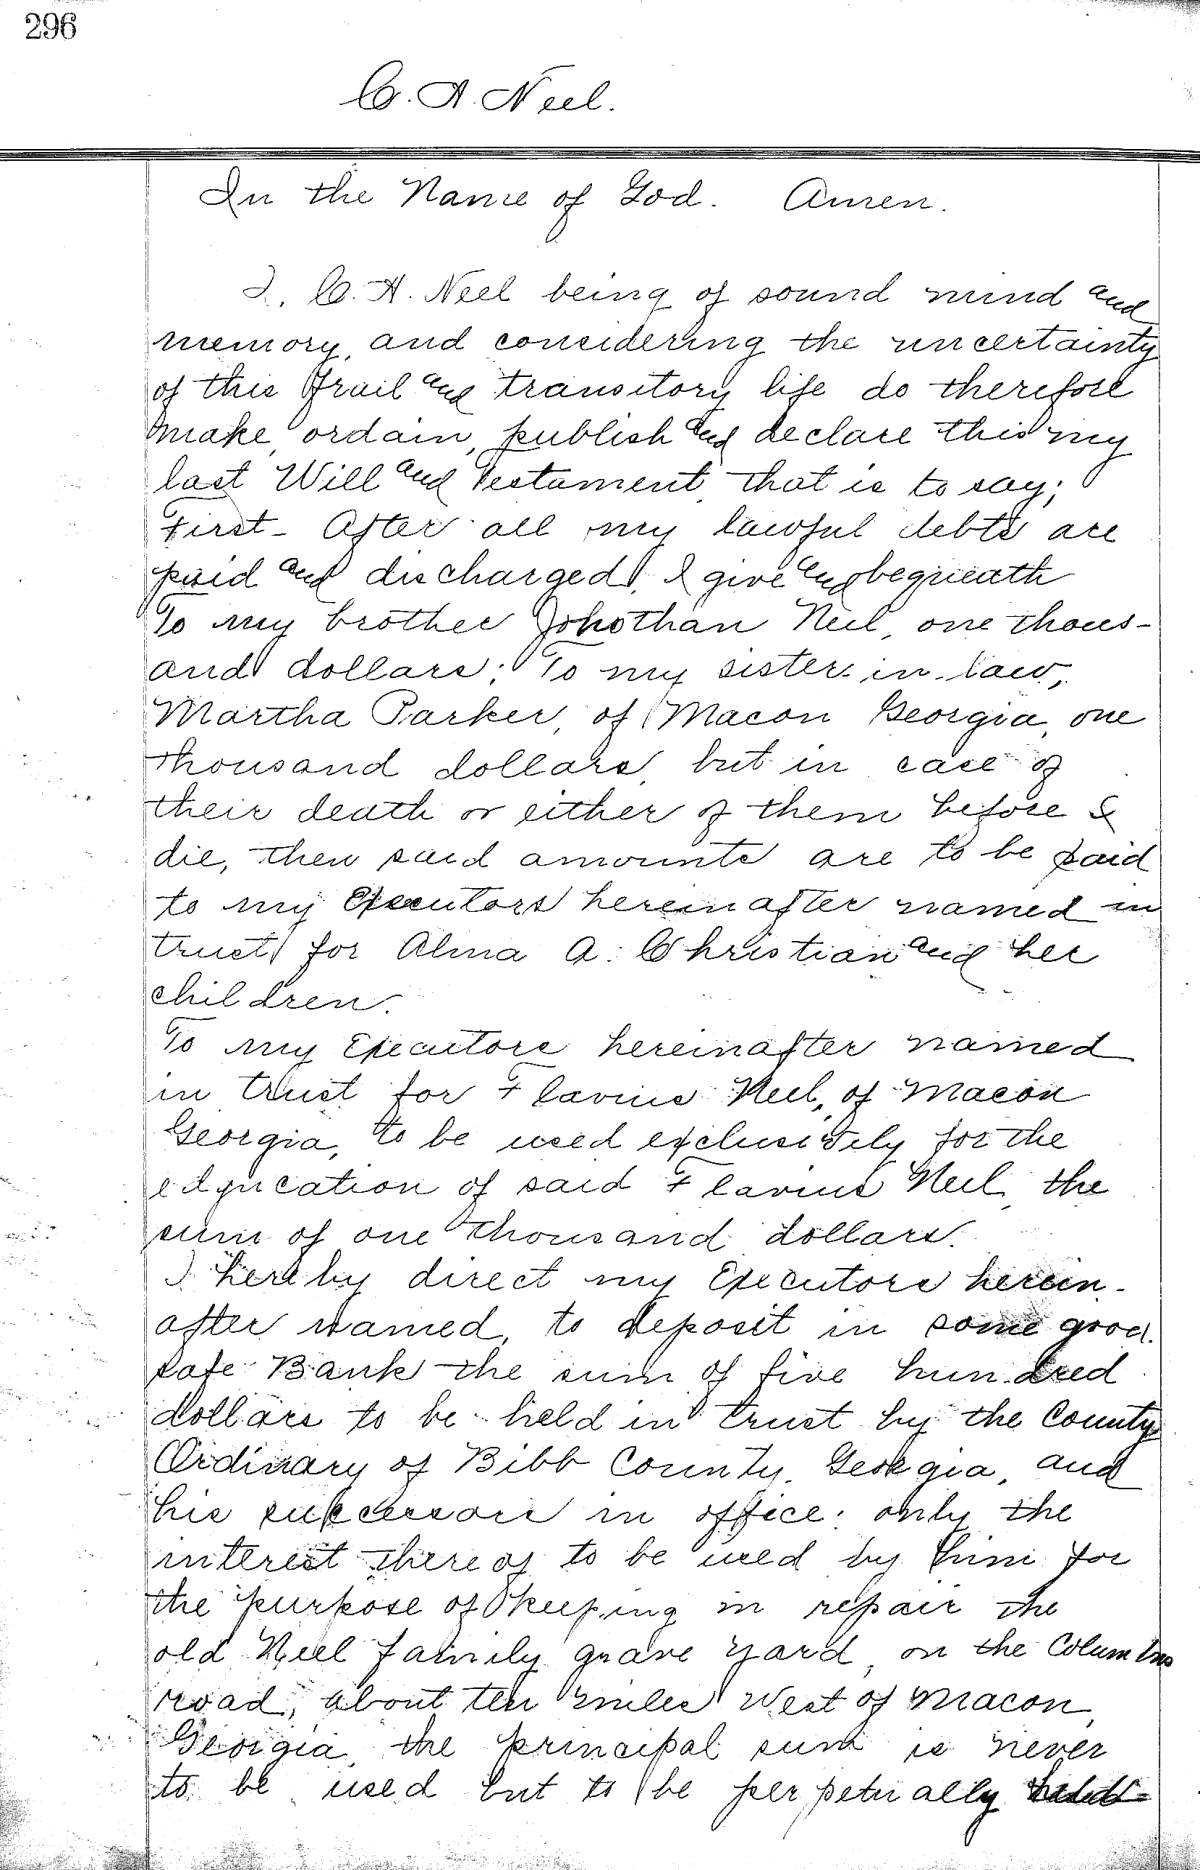 296
C. A. Neel.
In the Name of God. Amen.
I, C. A. Neel being of sound mind and
memory, and considering the uncertainty
of this frail and transitory life do therefore
make, ordain, publish and declare this my
last Will and Testament, that is to say;
First - After all my lawful debts are
paid and discharged, I give and bequeath
To my brother Johothan Neel, one thous-
and dollars; To my sister-in-law,
Martha Parker, of Macon Georgia, one
thousand dollars, but in case of
their death or either of them before I
die, then said amounts are to be paid
to my Executors hereinafter named in
trust for Alma A. Christian and her
children.
To my Executors hereinafter named
in trust for Flavius Neel, of Macon
Georgia, to be used exclusively for the
education of said Flavius Neel, the
sum of one thousand dollars.
I hereby direct my Executors herein-
after named, to deposit in some good
safe Bank the sum of five hundred
dollars to be held in trust by the County
Ordinary of Bibb County, Georgia, and
his successors in office; only the
interest thereof to be used by him for
the purpose of keeping in repair the
old Neel family grave yard, on the Columbus
road, about ten miles West of Macon,
Georgia, the principal sum is never
to be used but to be perpetually held